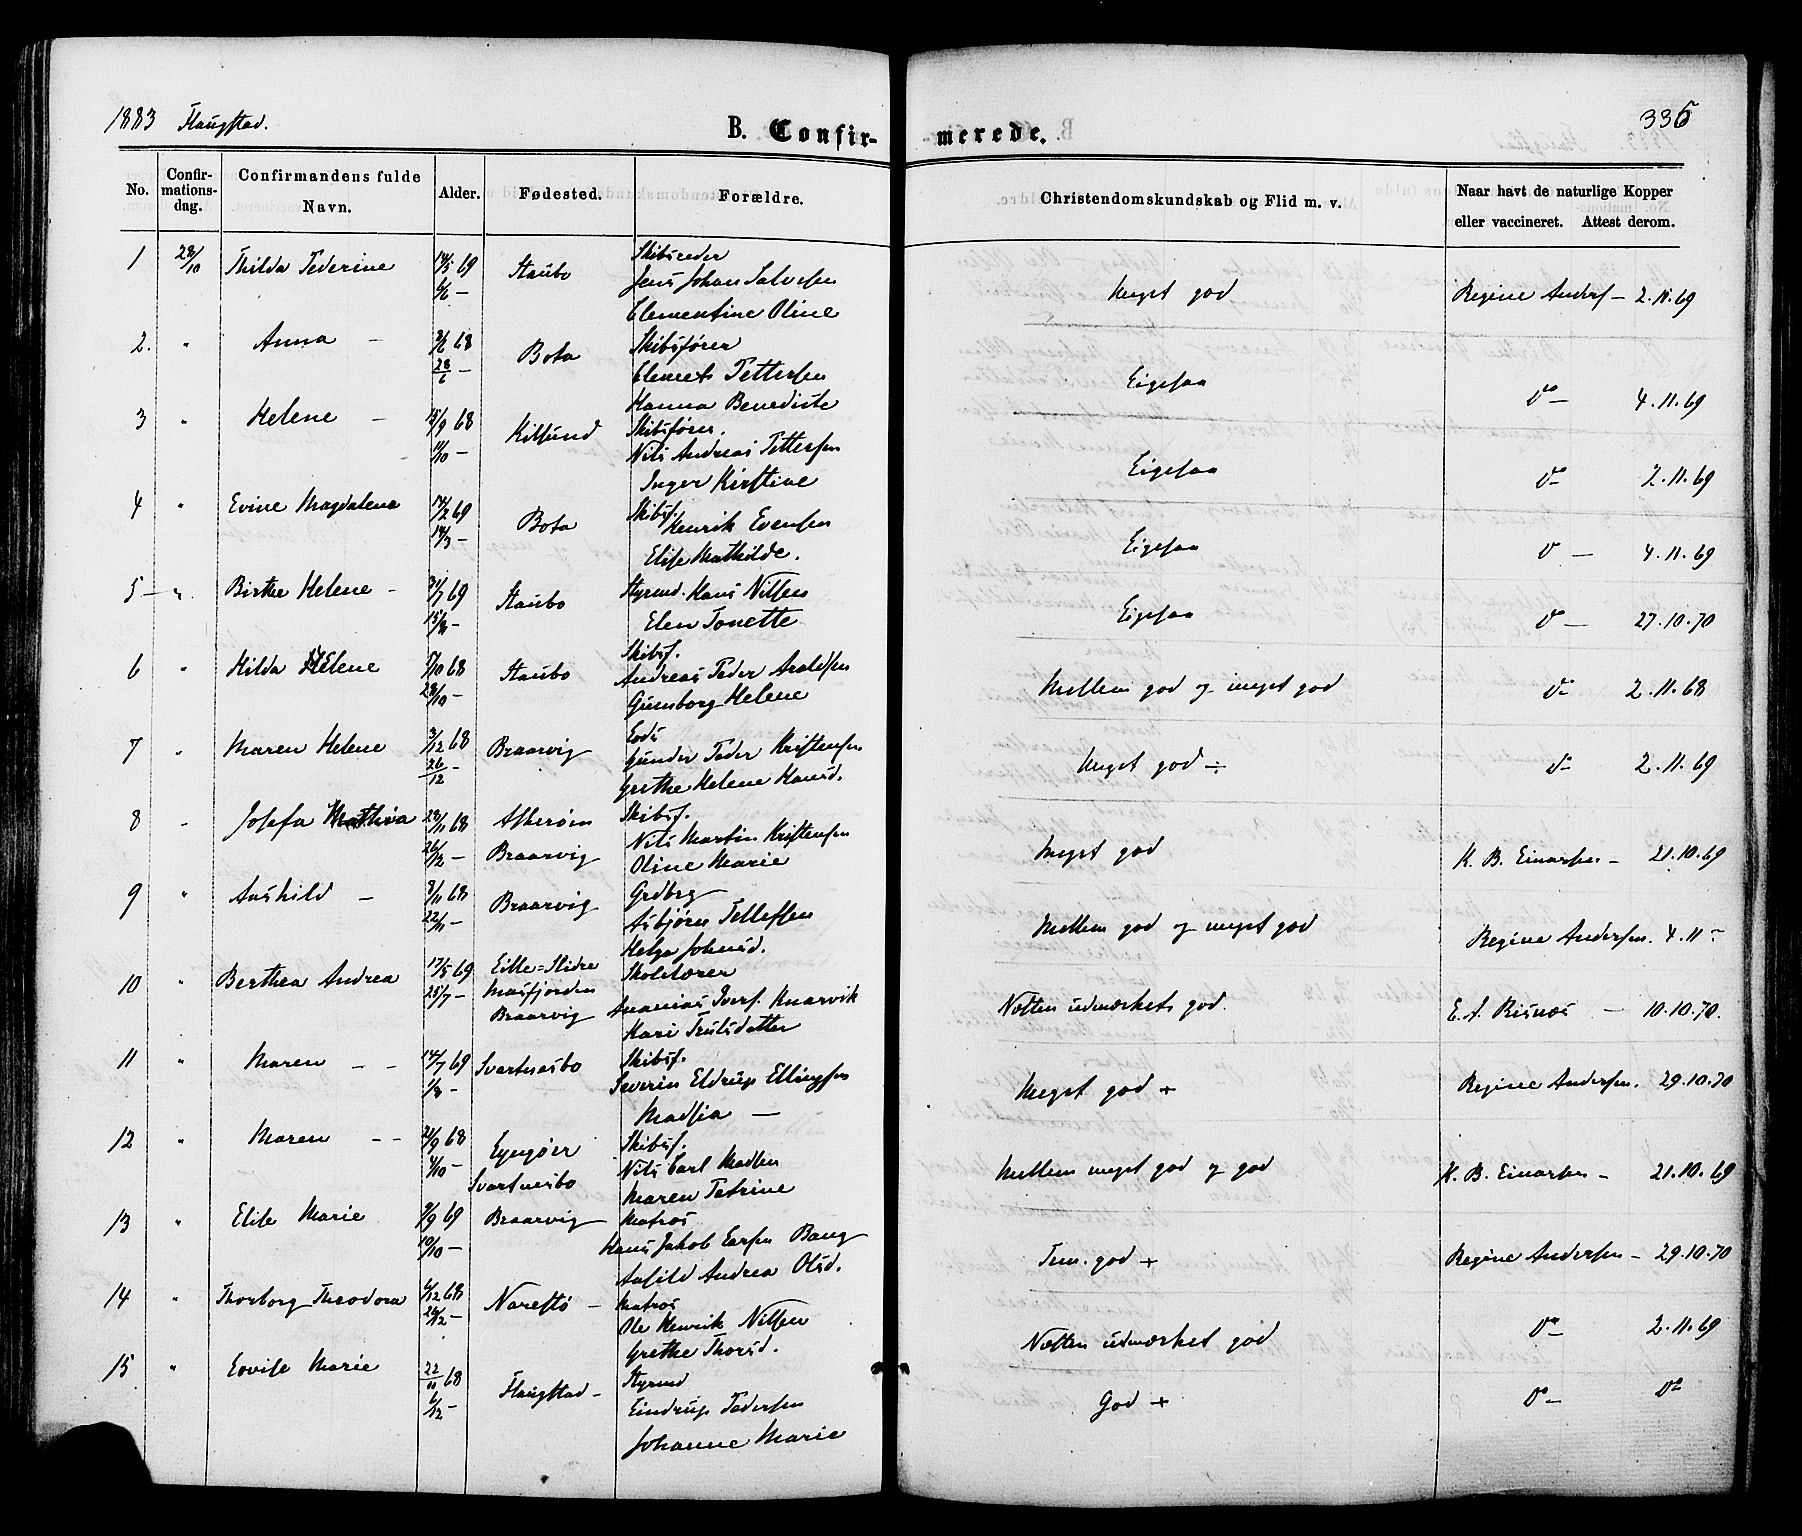 1883 Flangstad.
B. Confir-
merede.
335
No.
Confir-
mations-
dag.
Confirmandens fulde
Navn.
Alder.
Fødested.
Forældre.
Christendomskundskab og Flid m. v.
Naar havt de naturlige Kopper
eller vaccineret. Attest derom.
1 28/10 Thilda Pederine 14/5 69 Staubo Skibsreder
6/6 — Jens Johan Salvesen Meget god Regine Anders — 2.11.69
Clementine Oline
2. " Anna — 3/6 68 Bota Skibsfører
28/6 — Clemets Pettersen Eigesaa do — 4.11.69
Hanna Benedicte
3 " Helene — 15/9 68 Kilsund Skibsfører
11/10 — Nils Andreas Pettersen Eigesaa do 2.11.69
Inger Kirstine
4 " Evine Magdalena 14/2 69 Bota Skibsf.
14/3 — Henrik Evensen Eigesaa do — 4.11.69
Elise Mathilde.
5 — " Birthe Helene — 31/7 69 Staubo Styrmd. Hans Nilsen
15/8 — Elen Tonette Eigesaa do — 27.10.70
6 " Hilda Helene 5/10 68 Staubo Skibsf.
28/10 — Andreas Peder Aralesen Mellem god og meget god do 2.11.68
Gunborg Helene
7 " Maren Helene 3/12 68 Braarvig Lods
26/12 — Gunder Peder Kristensen Meget god ÷ do 2.11.69
Grethe Helene Hansd.
8 " Josefa Mathea 28/11 68 Askerøen Skibsf.
26/12 — Braarvig Nils Martin Kristensen Meget god K. B. Einarsen — 21.10.69
Oline Marie
9 " Aashild — 8/11 68 Braarvig Grdbrg
22/11 — Asbjørn Tellefsen Mellem god og meget god Regine Andersen. 4.11 —
Helga Johnsd.
10 " Berthea Andrea 17/5 69 Lille=Slidre Skolelærer
25/7 — Masfjorden
Braarvig Ananias Ivers. Knarvik Næsten udmærkets god. E. A. Risnæs — 10.10.70.
Kari Trulsdatter
11 " Maren — — 14/7 69 Svartnesbo Skibsf.
1/8 — Severin Eldrup Ellingsen Meget god + Regine Andersen. 29.10.70
Madsia —
12 " Maren — — 21/9 68 Lyngøer Skibsf.
4/10 — Svartnesbo Nils Carl Madsen Mellem meget god og god K. B. Einarsen — 21.10.69
Maren Petrine
13 " Elise Marie 9/9 69 Braarvig — Matros
10/10 — Hans Jakob Larsen Bang Tem. god + Regine Andersen — 29.10.70
Aasild Andrea Olsd.
14 " Thorborg Theodora 4/12 68 Narestø — Matros
26/12 — Ole Henrik Nilsen Næsten udmærket god do — 2.11.69
Grethe Thorsd.
15 " Lovise Marie 22/11 68 Flangstad — Styrmd
6/12 — Eindrup Pedersen God + do — do
Johanne Marie